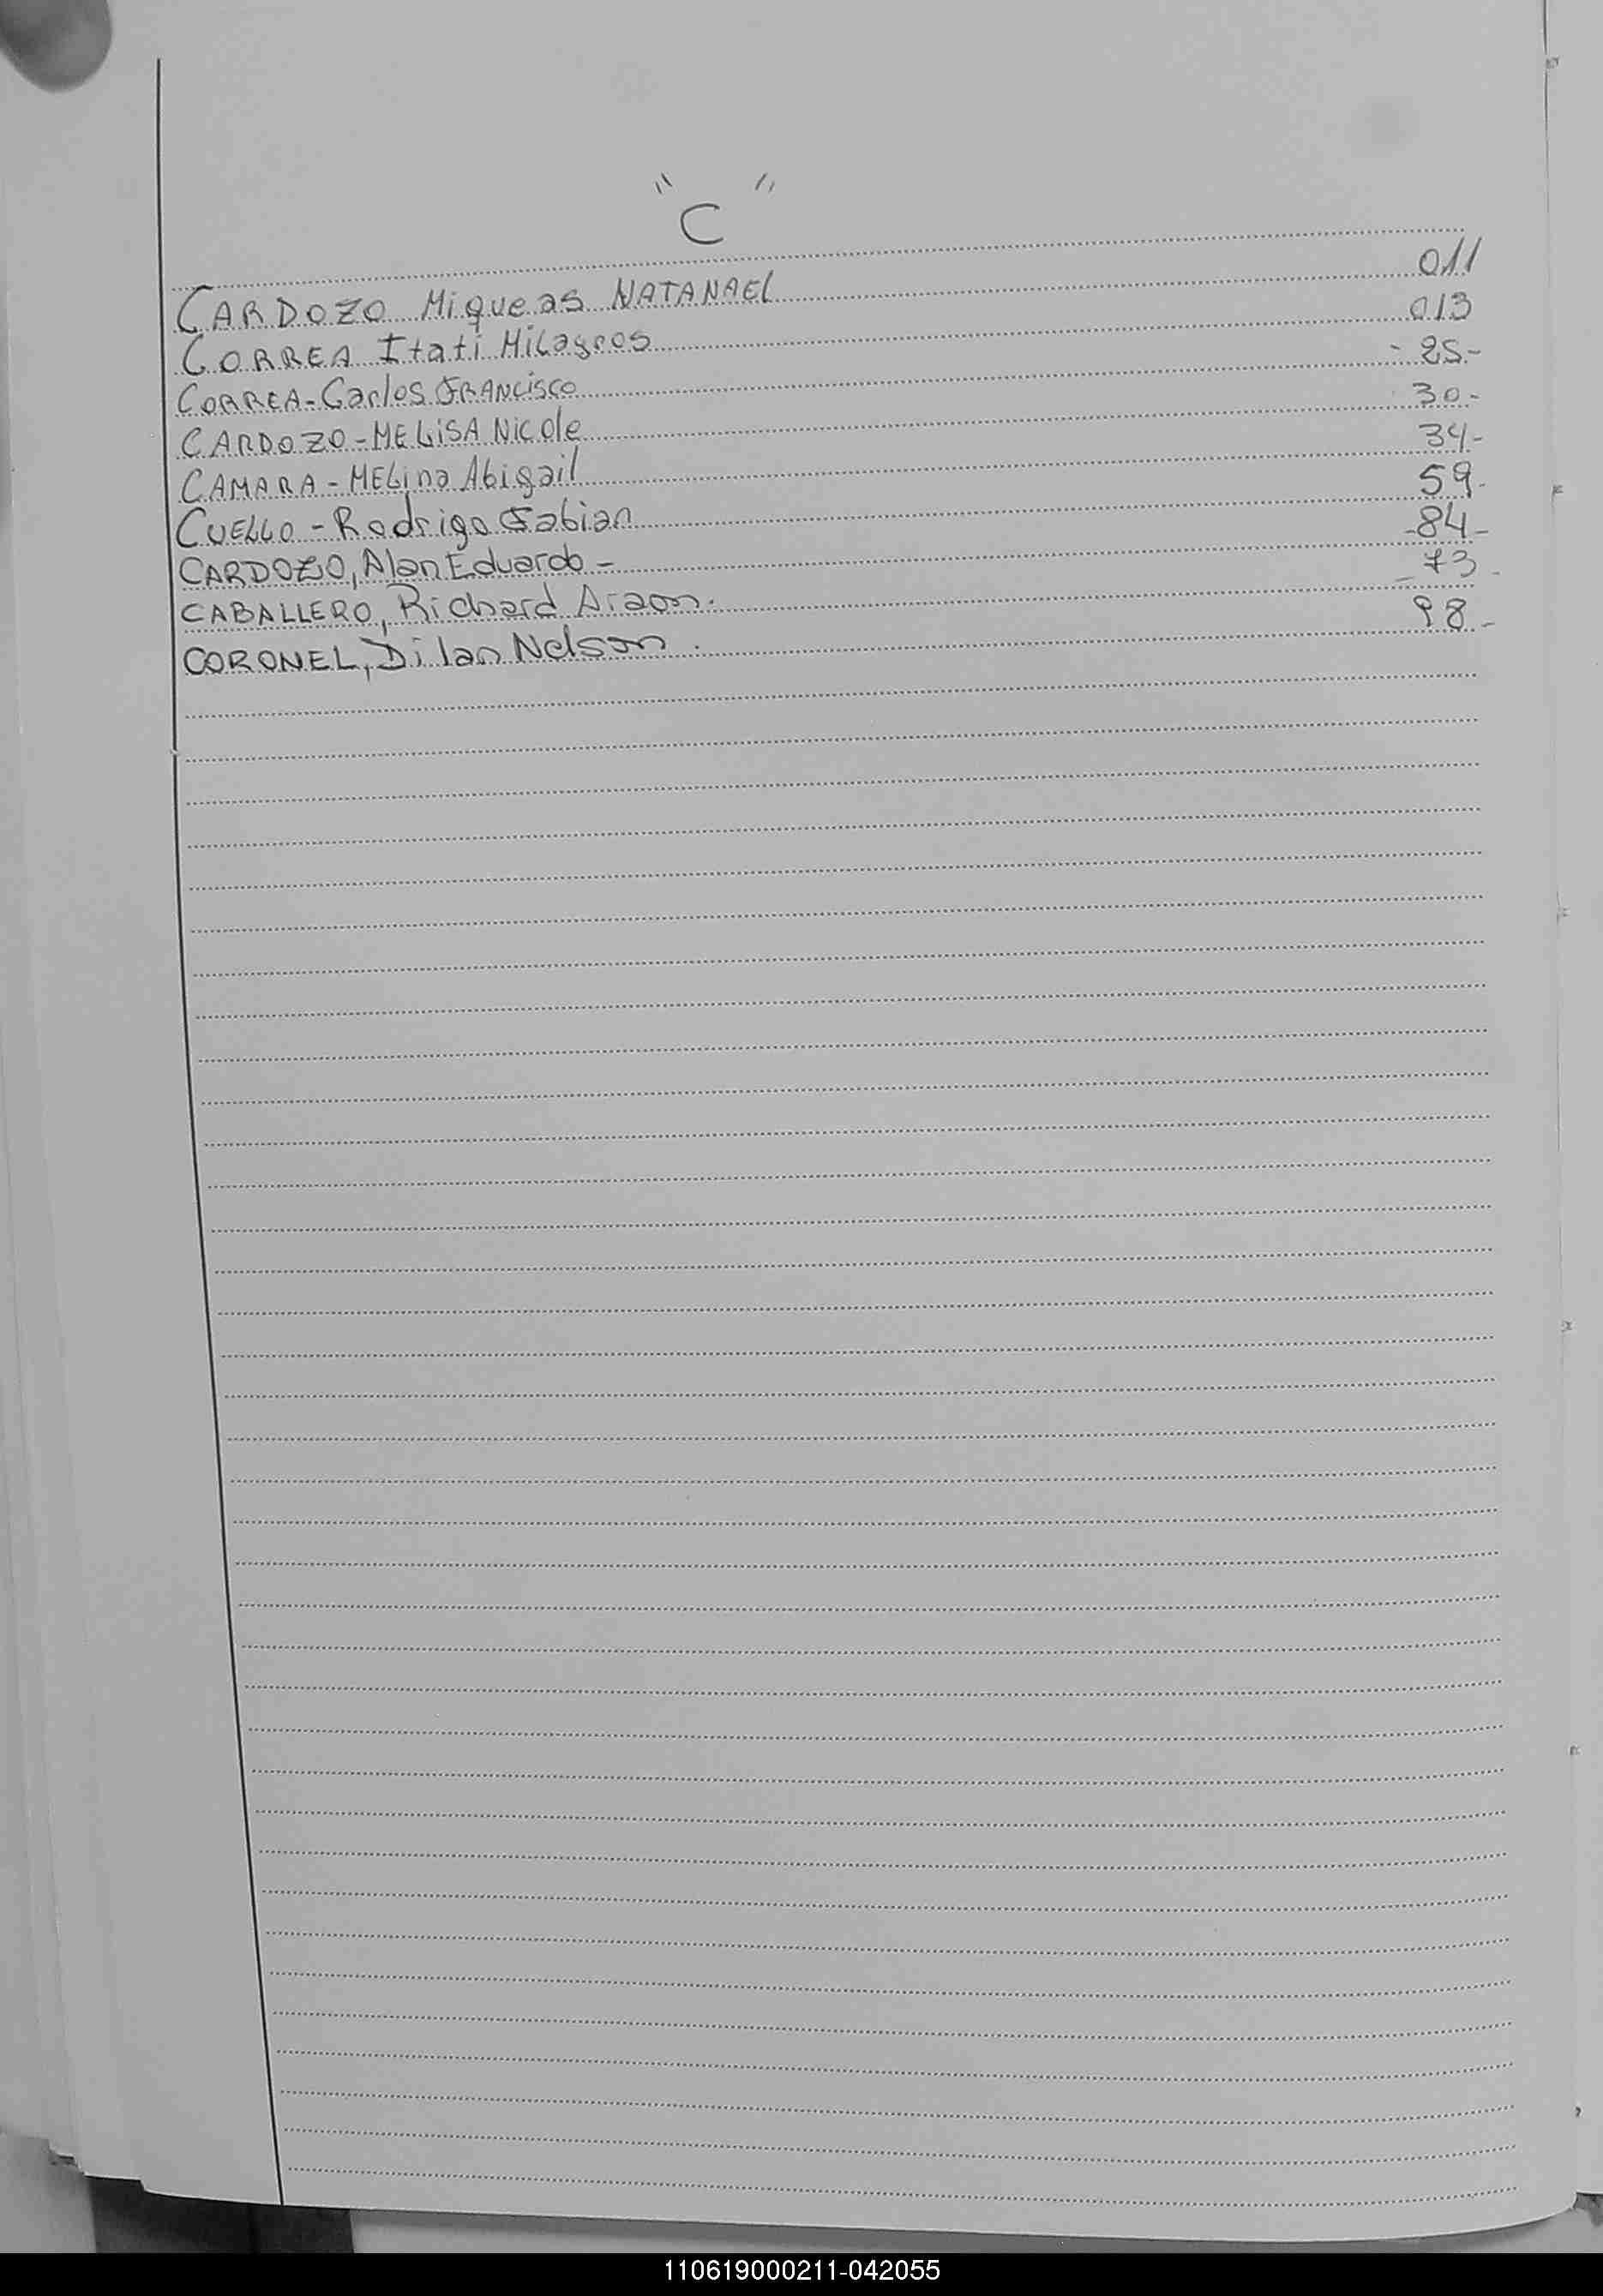 "C"
CARDOZO Miqueas NATANAEL 011
CORREA Itati Milagros 013
CORREA - Carlos FRANCISCO - 25 -
CARDOZO - MELISA Nicole 30 -
CAMARA - MELina Abigail 34 -
CUELLO - Rodrigo Fabian 59 -
CARDOZO, Alan Eduardo - - 84 -
CABALLERO, Richard Araon. - 73 -
CORONEL, Dilan Nelson. 98 -
110619000211-042055